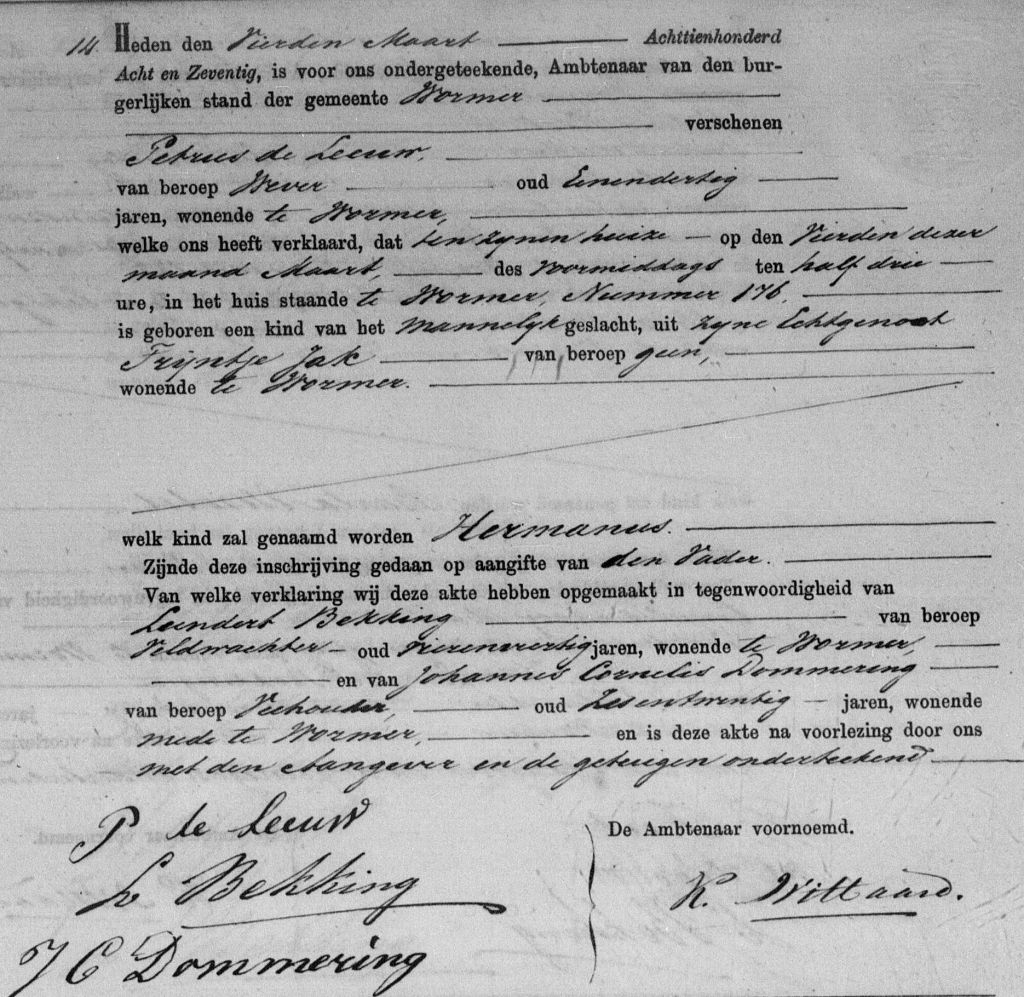 14. Heden den Vierden Maart Achttienhonderd
Acht en Zeventig, is voor ons ondergeteekende, Ambtenaar van den bur-
gerlijken stand der gemeente Wormer
verschenen
Petrus de Leeuw,
van beroep Wever oud Eenendertig
jaren, wonende te Wormer,
welke ons heeft verklaard, dat ten zynen huize op den Vierden dezer
maand Maart, des voormiddags ten half drie
ure, in het huis staande te Wormer, Nummer 176,
is geboren een kind van het Mannelyk geslacht, uit zyne Echtgenoot
Trijntje Jak van beroep geen,
wonende te Wormer.
welk kind zal genaamd worden Hermanus.
Zijnde deze inschrijving gedaan op aangifte van den Vader.
Van welke verklaring wij deze akte hebben opgemaakt in tegenwoordigheid van
Leendert Bekking van beroep
Veldwachter oud Vierenveertig jaren, wonende te Wormer,
en van Johannes Cornelis Dommering
van beroep Veehouder, oud Zesentwintig jaren, wonende
mede te Wormer, en is deze akte na voorlezing door ons
met den Aangever en de getuigen onderteekend
P de Leeuw
De Ambtenaar voornoemd.
L Bekking
K. Wittaard.
J C Dommering